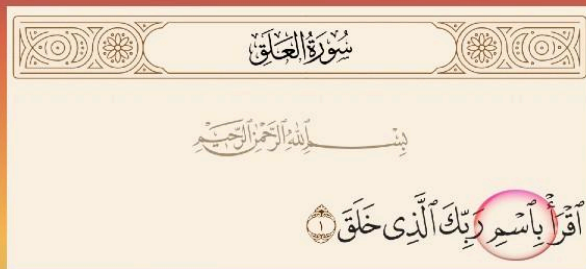 سُورَةُ العَلَقِ
بِسْمِ ٱللَّهِ ٱلرَّحْمَٰنِ ٱلرَّحِيمِ
ٱقْرَأْ بِٱسْمِ رَبِّكَ ٱلَّذِى خَلَقَ ۝١